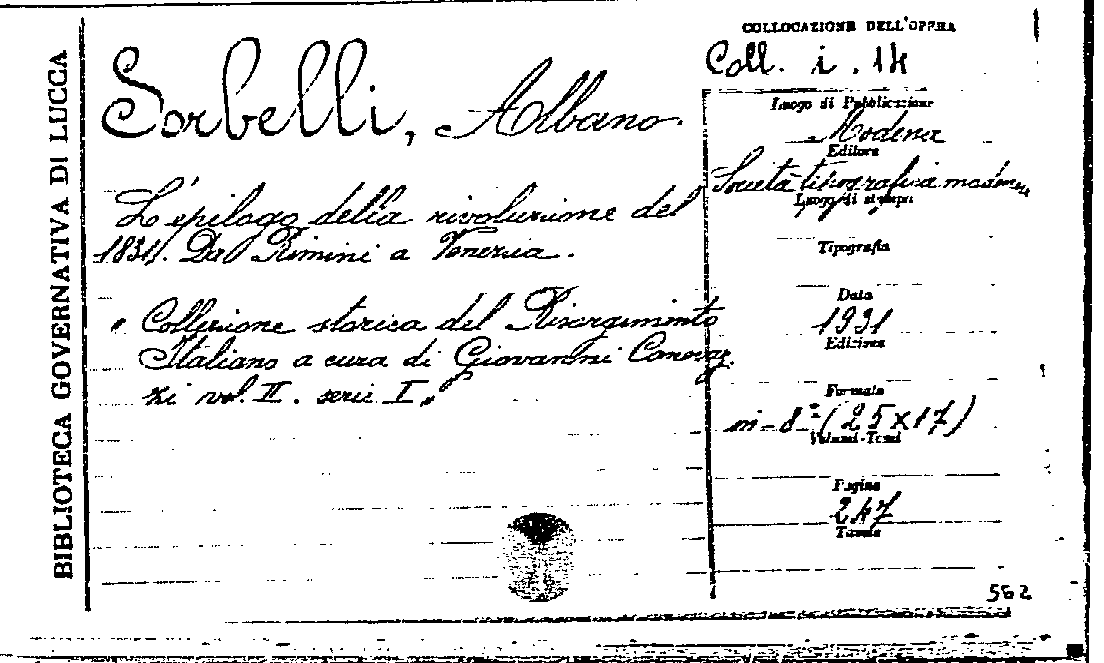 BIBLIOTECA GOVERNATIVA DI LUCCA
Sorbelli, Albano.
L'epilogo della rivoluzione del
1831. Da Rimini a Venezia.
" Collezione storica del Risorgimento
Italiano a cura di Giovanni Canevaz
zi vol. II. serie I."
COLLOCAZIONE DELL'OPERA
Coll. i. 14
Luogo di Pubblicazione
Modena
Editore
Società tipografica modenese
Luogo di stampa
Tipografia
Data
1931
Edizione
Formato
in-8° (25x17)
Volumi-Tomi
Pagine
247
Tavole
562